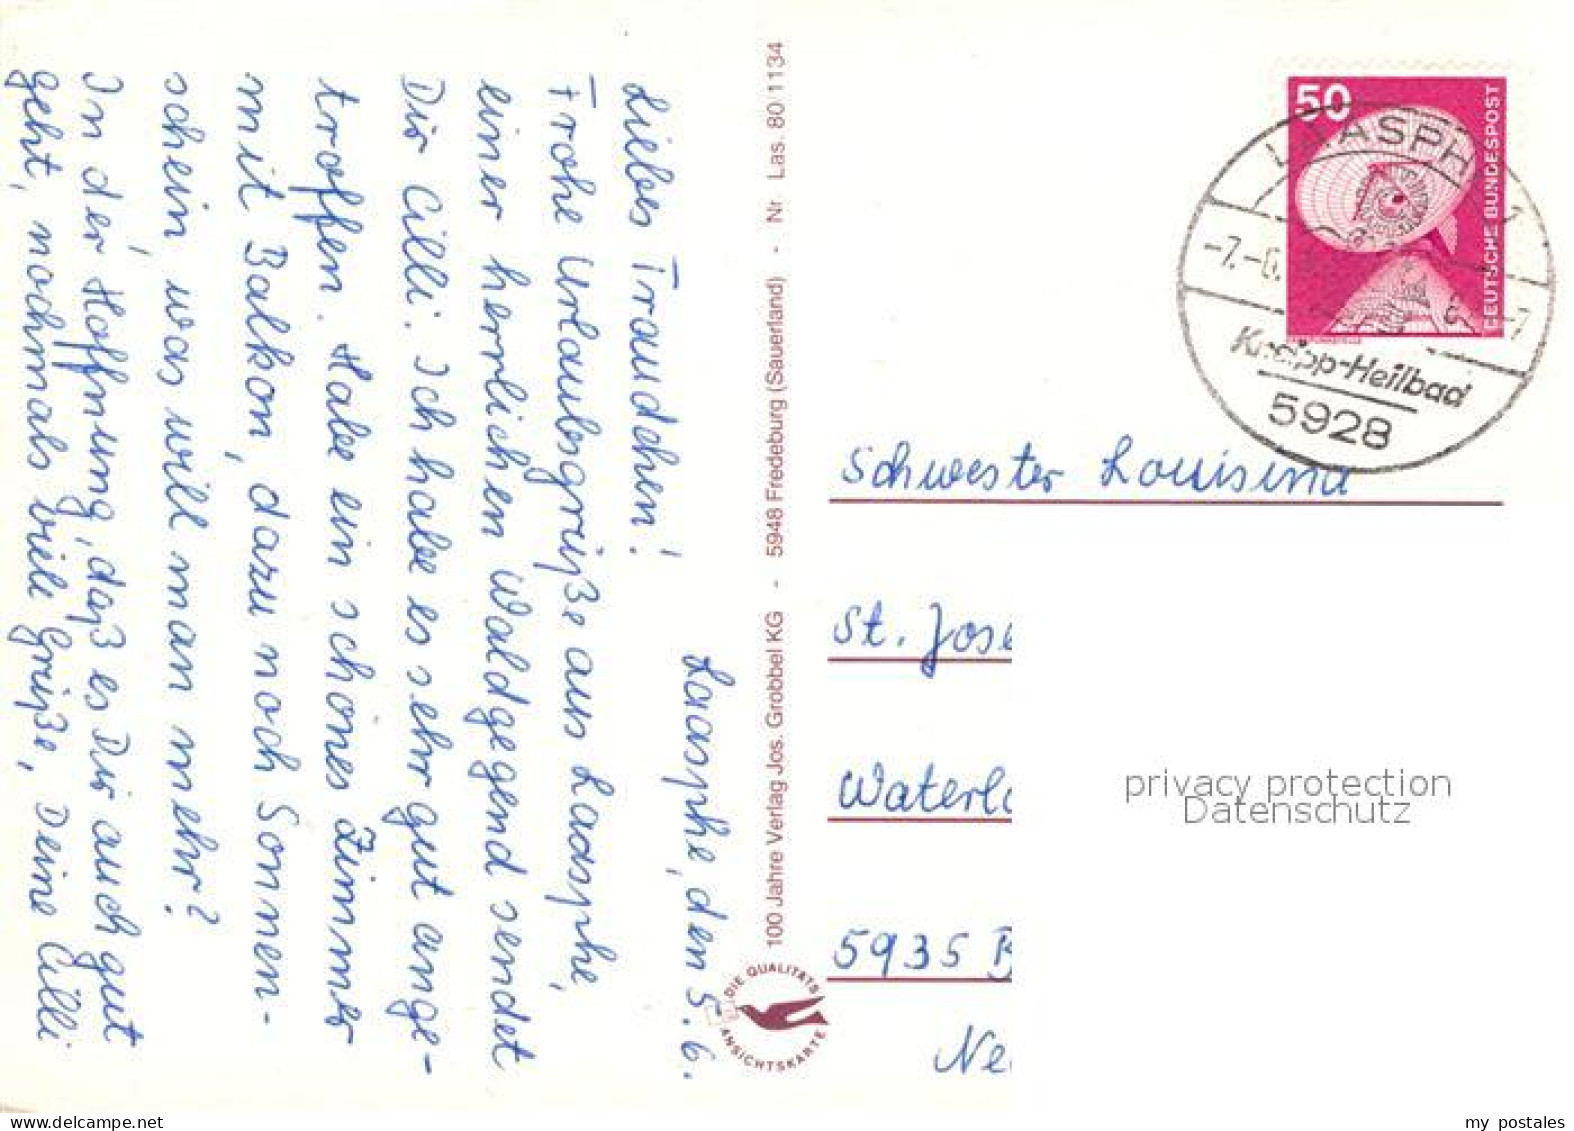 Laasphe, den 5.6.
Liebes Traudchen!
Frohe Urlaubsgrüße aus Laasphe,
einer herrlichen Waldgegend sendet
Dir Cilli. Ich habe es sehr gut ange-
troffen. Habe ein schönes Zimmer
mit Balkon, dazu noch Sonnen-
schein, was will man mehr?
In der Hoffnung, daß es Dir auch gut
geht, nochmals viele Grüße, Deine Cilli
100 Jahre Verlag Jos. Grobbel KG - 5948 Fredeburg (Sauerland) - Nr. Las. 80 1134
DIE QUALITÄTS
ANSICHTSKARTE
50
DEUTSCHE BUNDESPOST
LAASPHE 1
-7.-6.
-7
Kneipp-Heilbad
5928
Schwester Louisina
St. Jose
Waterlo
5935
Ne
privacy protection
Datenschutz
my postales